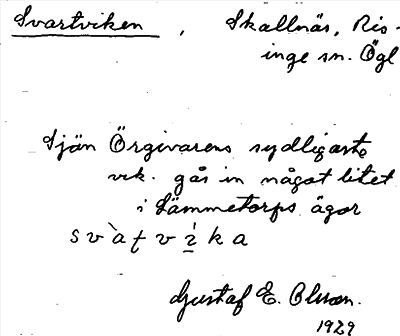 Svartviken, Skallnäs, Ris-
inge sn. Ögl
Sjön Örgivarens sydligaste
vik. går in något litet
i Lämmetorps ägor
s v a̍ ṭ v i̱̍ k a
Gustaf E. Olsson.
1929